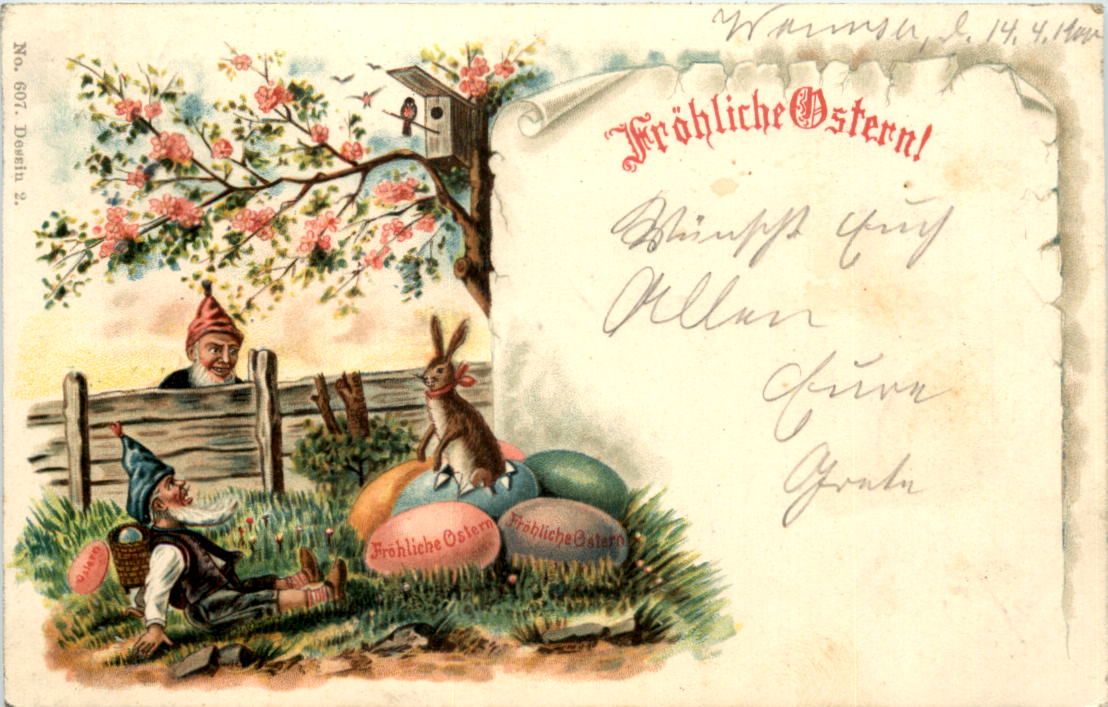 d. 14. 4. 1900
No. 607. Dessin 2.
Fröhliche Ostern!
Wünscht Euch
Allen
Eure
Grete
Fröhliche Ostern
Fröhliche Ostern
Ostern